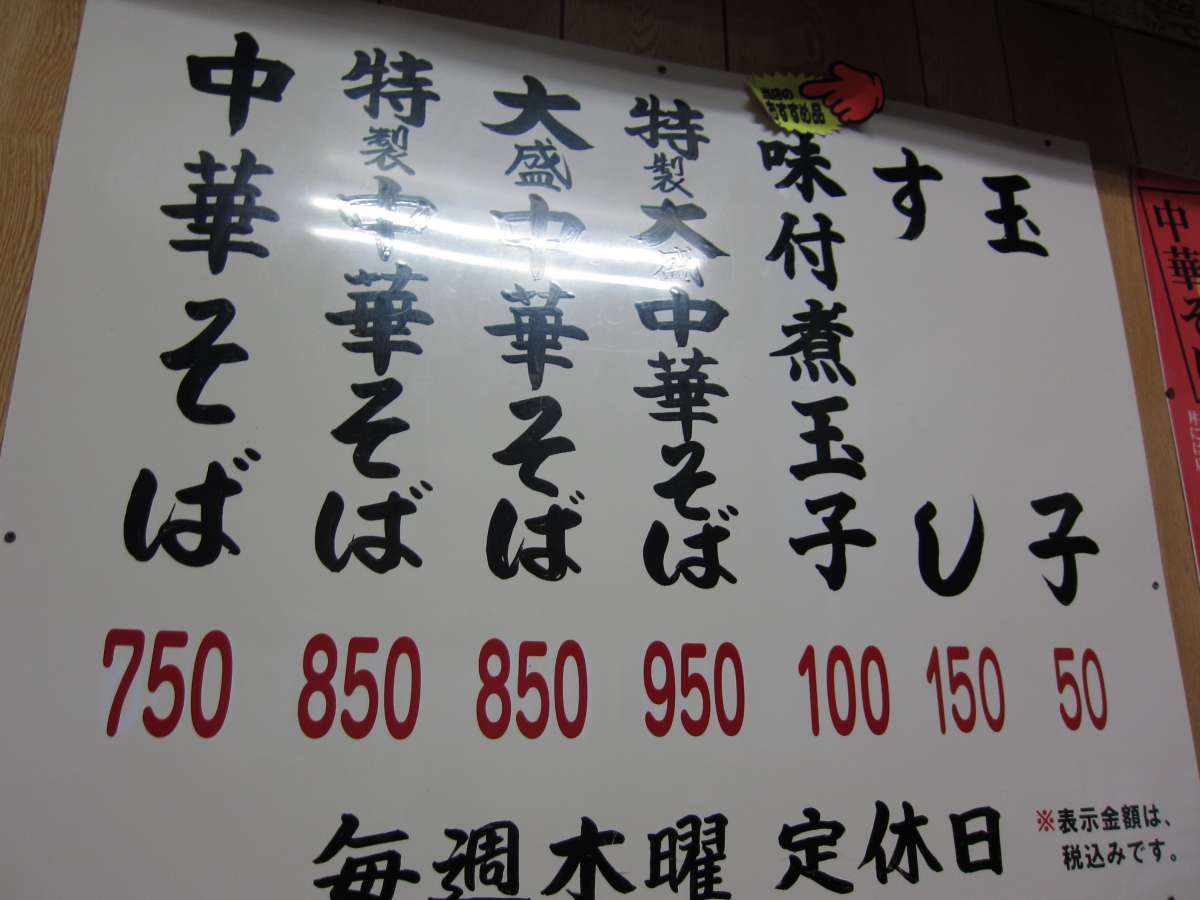 中華そば
750
特製中華そば
850
大盛中華そば
850
特製大盛中華そば
950
当店の
おすすめ品
味付煮玉子
100
すし
150
玉子
50
毎週木曜定休日
※表示金額は、
税込みです。
中華そ